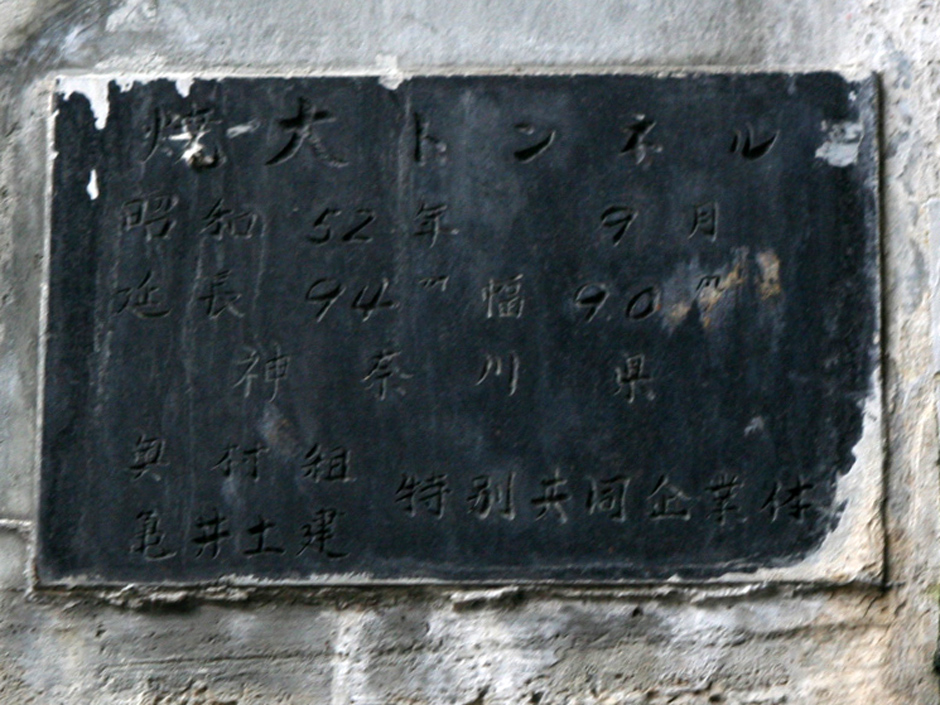 焼大トンネル
昭和52年 9月
延長94m 幅90m
神奈川県
奥村組
亀井土建
特別共同企業体